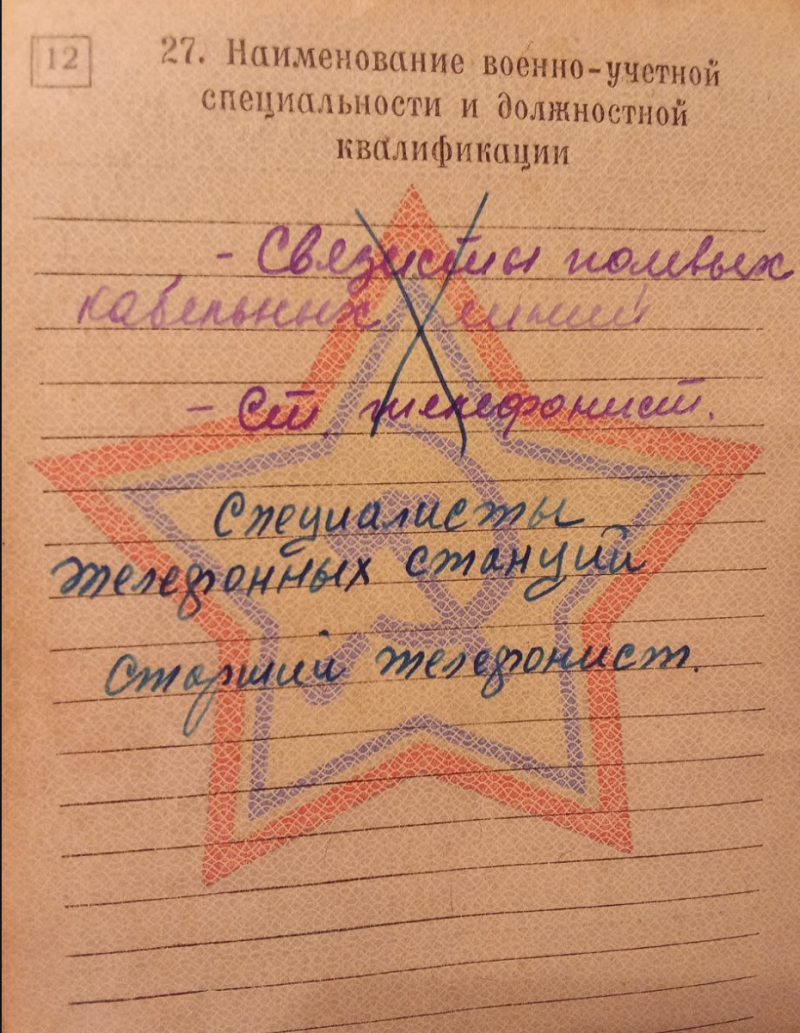 12
27. Наименование военно-учетной
специальности и должностной
квалификации
- Связисты полевых
кабельных линий
- Ст. телефонист.
Специалисты
телефонных станций
Старший телефонист.